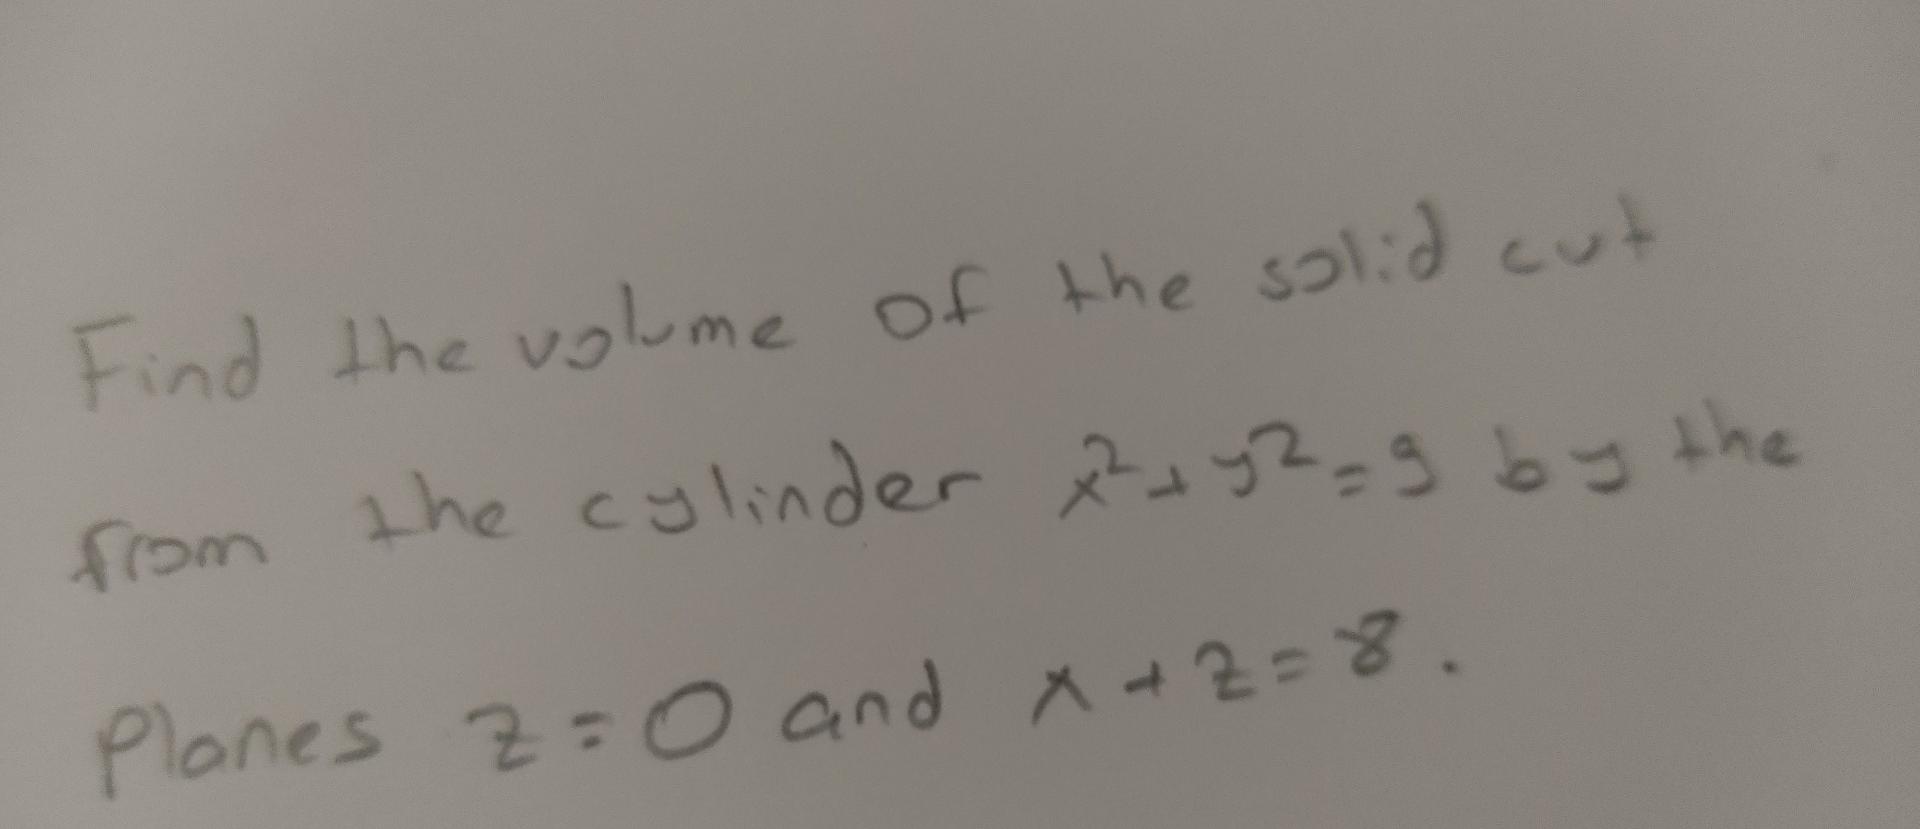 Find the volume of the solid cut
from the cylinder x²+y²=9 by the
planes z=0 and x+z=8.